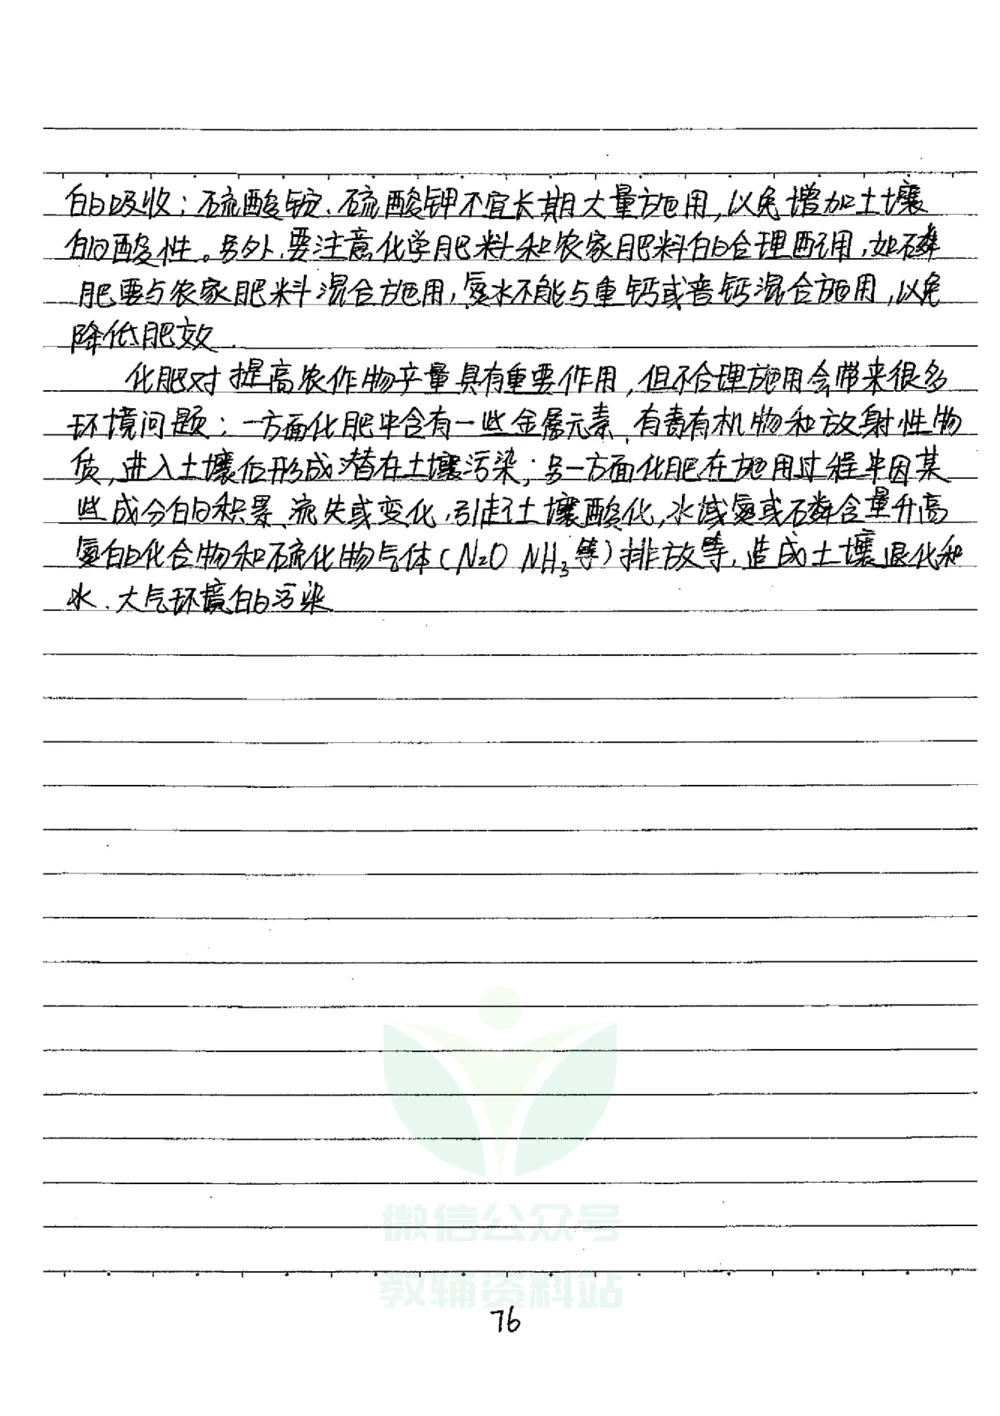 的吸收；硫酸铵、硫酸钾不宜长期大量施用，以免增加土壤
的酸性。另外，要注意化学肥料和农家肥料的合理配用，如磷
肥要与农家肥料混合施用，氨水不能与重钙或普钙混合施用，以免
降低肥效.
化肥对提高农作物产量具有重要作用，但不合理施用会带来很多
环境问题：一方面化肥中含有一些金属元素、有毒有机物和放射性物
质，进入土壤后形成潜在土壤污染；另一方面化肥在施用过程中因某
些成分的积累、流失或变化，引起土壤酸化，水域氮或磷含量升高
氮的化合物和硫化物气体(N₂O NH₃等)排放等，造成土壤退化和
水、大气环境的污染
微信公众号
教辅资料站
76